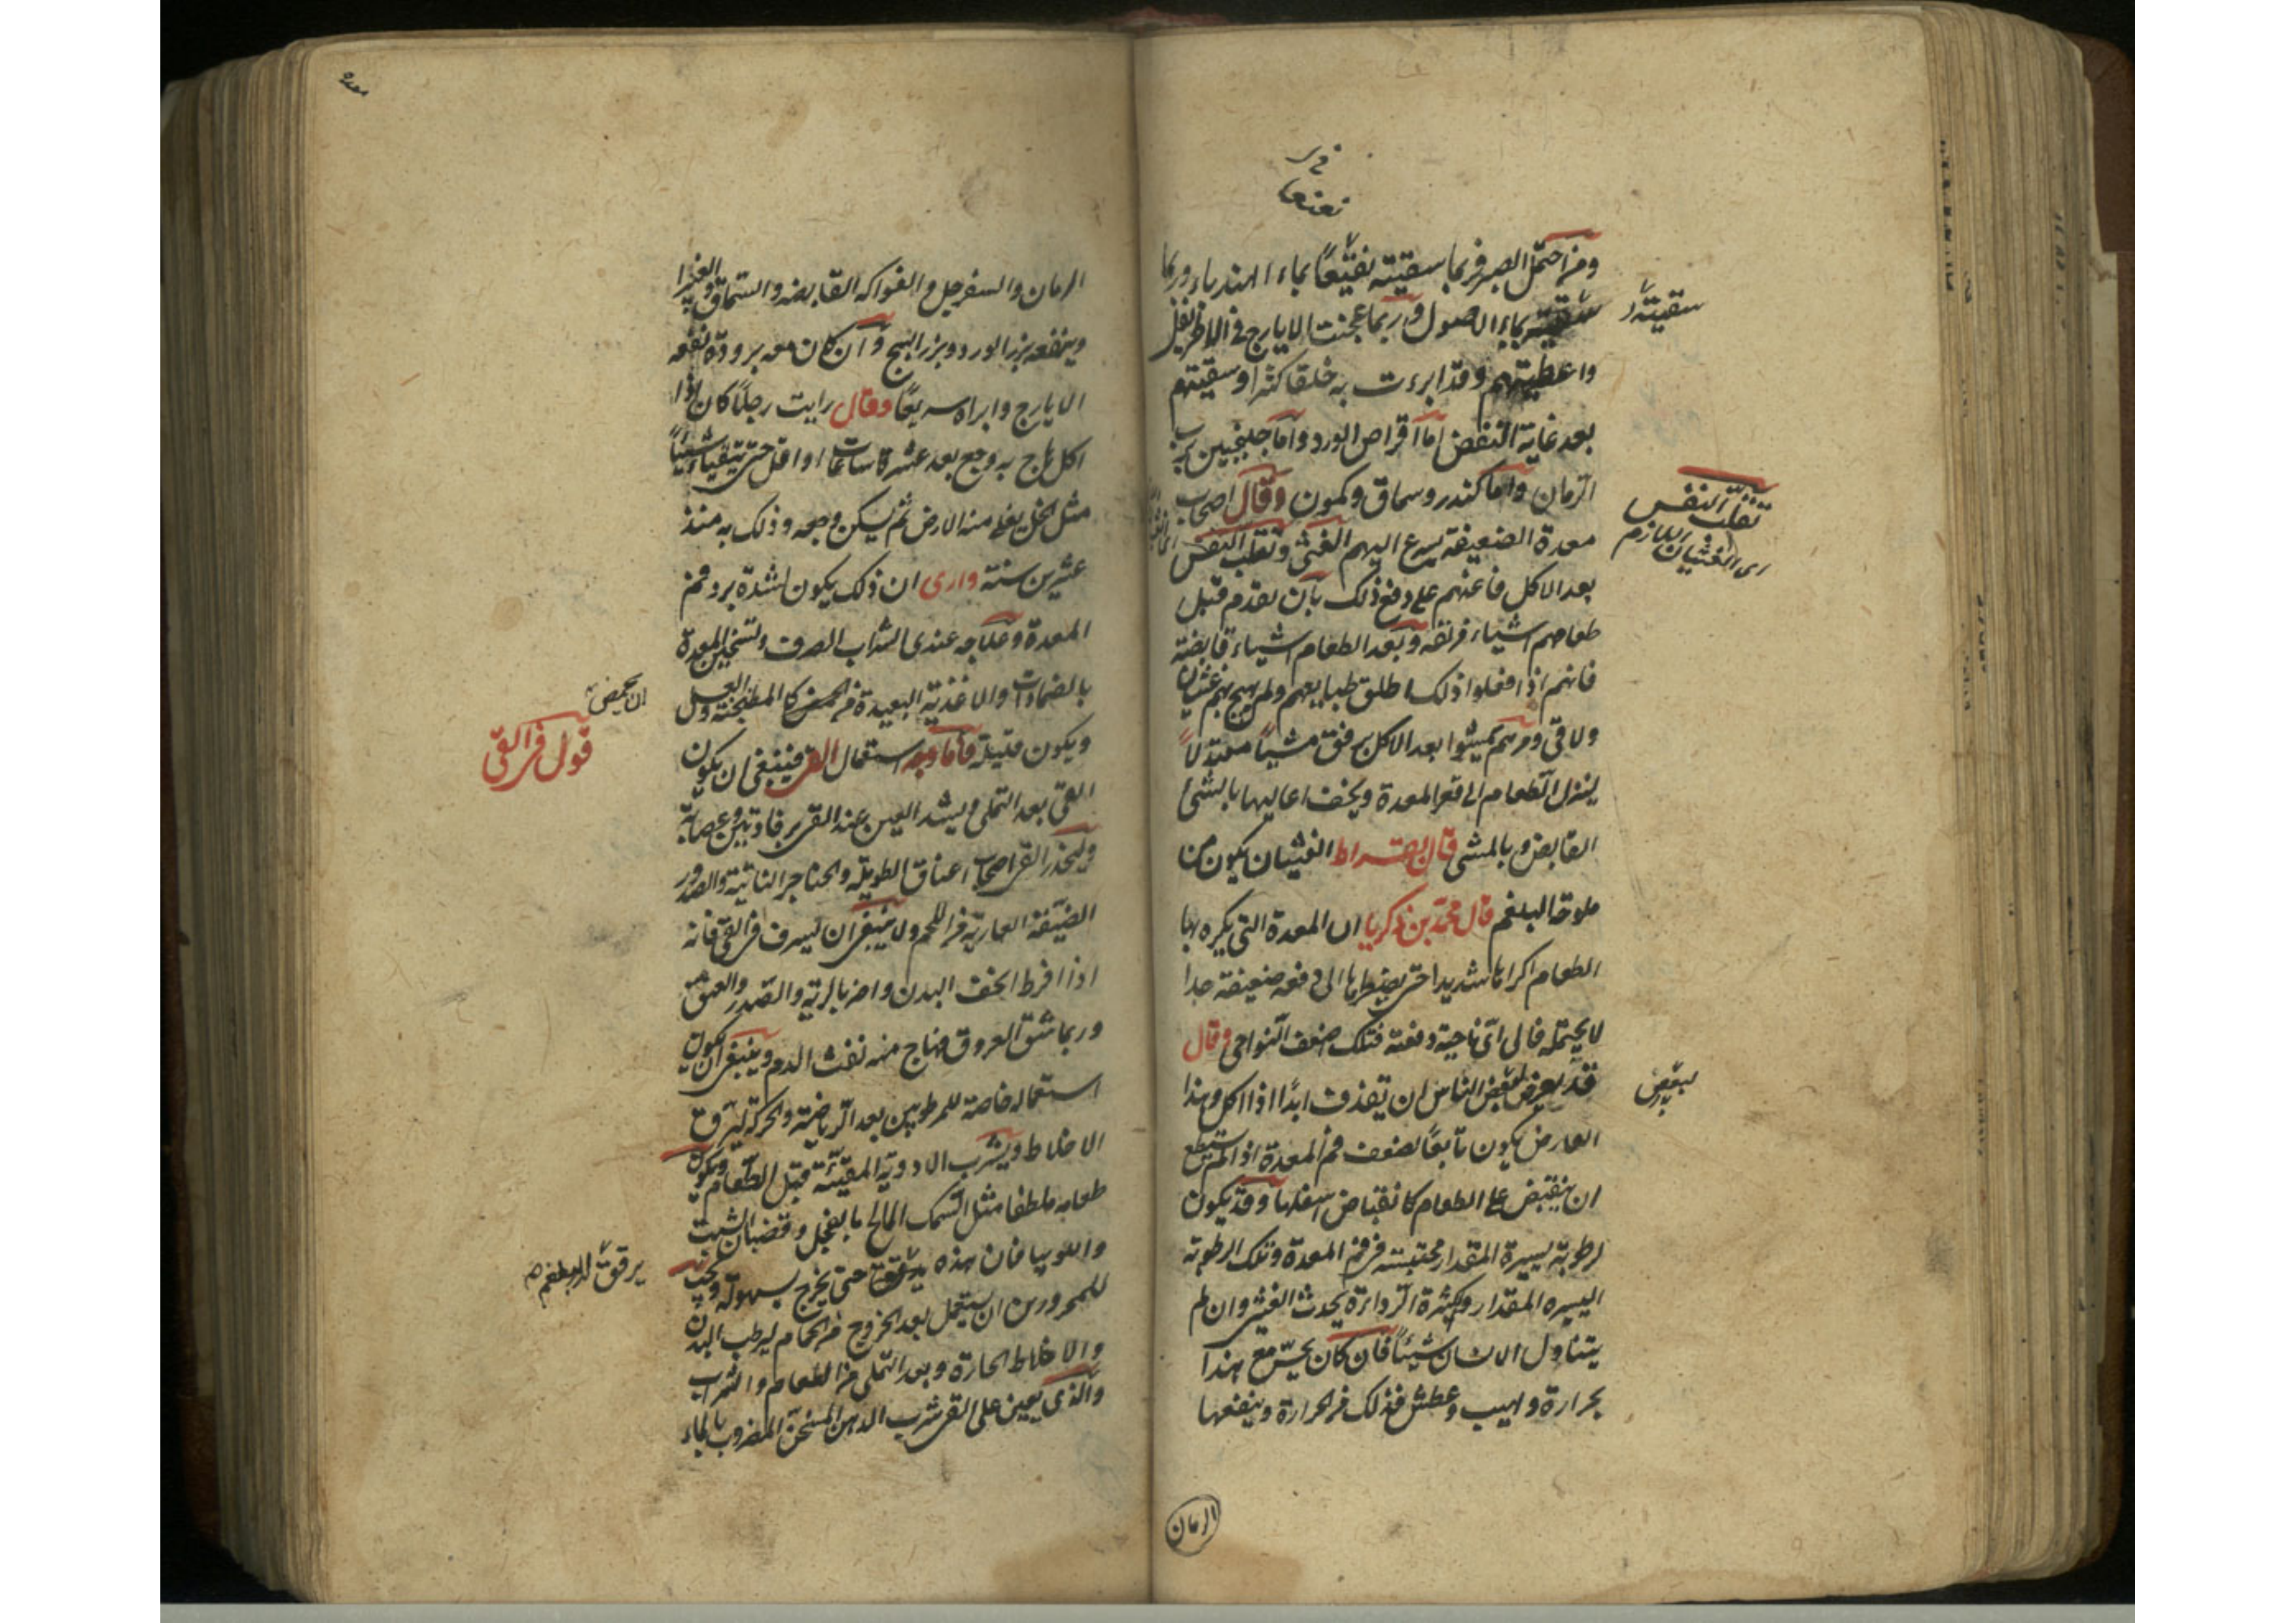 في
نعنعا
ومن احتمل الصبر فربما سقيته نقيعًا بماء الهندباء وربما
سقيته بماء الاصول وربما عجنت الايارج في الاطريفل
سقيته
واعطيتهم وقد ابرءت به خلقا كثيرا وسقيتهم
بعد غاية النفض اما اقراص الورد واما جلنجبين برب
الرمان واما كندر وسماق وكمون وقال اصحاب
معدة الضعيفة يسرع اليهم الغثي وتقلب النفس
تقلب النفس
اى الغثيان اللازم
بعد الاكل فاعنهم على دفع ذلك بان تقدم قبل
طعامهم اشياء مزلقة وبعد الطعام اشياء قابضة
فانهم اذا فعلوا ذلك اطلق طبايعهم ولم يهيج بهم غثيان
ولا قي ومرهم يمشوا بعد الاكل برفق مشيًا معتدلاً
لينزل الطعام الى قعر المعدة ويخف اعاليها بالشئ
القابض وبالمشي قال بقراط الغثيان يكون من
ملوحة البلغم قال محمد بن زكريا ان المعدة التي يكره بها
الطعام اكراها شديدا حتى يضطرها الى دفعه ضعيفة جدا
لا يحتمله فالى اىّ ناحية دفعته فتلك اضعف النواحى وقال
قد يعرض لبعض الناس ان تقذف ابدًا اذا اكل وهذا
لبعض
العارض يكون تابعًا لضعف فم المعدة اذا لم تستطع
ان ينقبض على الطعام كانقباض اسفلها وقد يكون
لرطوبة يسيرة المقدار محتبسة فى فم المعدة وتلك الرطوبة
اليسيره المقدار وكثيرة الرداءة يحدث الغثى وان لم
يتناول الانسان شيئًا فان كان يحسّ مع هذا
بحرارة ولهيب وعطش فذلك من الحرارة وينفعها
الرمان
معده
الرمان والسفرجل والفواكه القابضه والسماق والغبيرا
وينفعه بزر الورد وبزر البنج وان كان معه برودة نفعه
الايارج وابراه سريعًا وقال رايت رجلاً كان اذا
اكل هاج به وجع بعد عشر ساعات او اقل حتى يتقياء شيئًا
مثل الخل يغلى منه الارض ثم يسكن وجعه وذلك به منذ
عشرين سنة وارى ان ذلك يكون لشدة برد فم
المعدة وعلاجه عندى الشراب الصرف وتسخين المعدة
بالضمادات والاغذية البعيدة من الحمض كالمطبخنة والعسل
ان يحمض
ويكون قليلة فاما وجه استعمال القى فينبغى ان يكون
قول فى القىّ
القىّ بعد التملى ويشد العين عند القى برفادتين وعصابة
وليحذر القى اصحاب اعناق الطويلة والحناجر الناتية والصدور
الضيقة العارية من اللحم ولا ينبغى ان يسرف فى القىّ فانه
اذا افرط انحف البدن واضر بالرية والصدر والعنق
وربما شق العروق فهاج منه نفث الدم وينبغى ان يكون
استعماله خاصة للمرطوبين بعد الرياضة والحركة ليرق
الاخلاط ويشرب الادوية المقيئة قبل الطعام ويكون
طعامه ملطفا مثل السمك المالح بالفجل وقضبان الشبت
واللوبيا فان هذه يرقق حتى يخرج بسهولة ويجب
يرقق البلغم
للمحرورين ان يستعمل بعد الخروج من الحمام ليرطب البدن
والاخلاط الحارة وبعد التملى من الطعام والشراب
والذى يعين على القى شرب الدهن المسخن المضروب بالماء